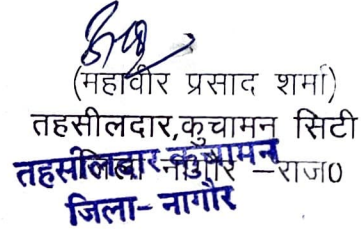 (महावीर प्रसाद शर्मा)
तहसीलदार,कुचामन सिटी
जिला नागौर –राज0
तहसीलदार कुचामन
जिला– नागौर